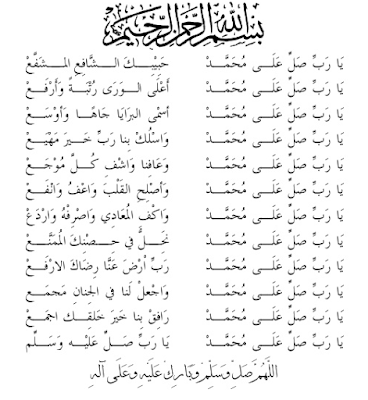 بِسْمِ اللهِ الرَّحْمٰنِ الرَّحِيْمِ
يَا رَبِّ صَلِّ عَلَـى مُحَمَّـدْ حَبِيْبِـكَ الشَّافِعِ المُـشَفَّعْ
يَا رَبِّ صَلِّ عَلَـى مُحَمَّـدْ أَعْلَى الـوَرَى رُتْبَـةً وَأَرْفَـعْ
يَا رَبِّ صَلِّ عَلَـى مُحَمَّـدْ أَسْمَى البَرَايَا جَاهًـا وَأَوْسَـعْ
يَا رَبِّ صَلِّ عَلَـى مُحَمَّـدْ وَاسْلُكْ بِنا رَبِّ خَيـرَ مَهْيَعْ
يَا رَبِّ صَلِّ عَلَـى مُحَمَّـدْ وَعَافِنا وَاشْفِ كُـلَّ مُوْجَـعْ
يَا رَبِّ صَلِّ عَلَـى مُحَمَّـدْ وَأَصْلِحِ القَلْبَ وَاعْفُ وَانْفَـعْ
يَا رَبِّ صَلِّ عَلَـى مُحَمَّـدْ وَاكْفِ المُعَادِي وَاصْرِفْهُ وَارْدَعْ
يَا رَبِّ صَلِّ عَلَـى مُحَمَّـدْ نَحُلُّ في حِـصْنِكَ المُمَنَّـعْ
يَا رَبِّ صَلِّ عَلَـى مُحَمَّـدْ رَبِّ ارْضَ عَنَّا رِضَاكَ الارْفَـعْ
يَا رَبِّ صَلِّ عَلَـى مُحَمَّـدْ وَاجْعَلْ لَنا في الجِنانِ مَجمَـعْ
يَا رَبِّ صَلِّ عَلَـى مُحَمَّـدْ رَافِقْ بِنا خَيرَ خَلقِـك اجْمَـعْ
يَا رَبِّ صَلِّ عَلَـى مُحَمَّـدْ يَا رَبِّ صَلِّ عَلَيْـهِ وَسَـلِّمْ
اللَّهُمَّ صَلِّ وَسَلِّمْ وَبَارِكْ عَلَيْهِ وَعَلَى آلِهِ